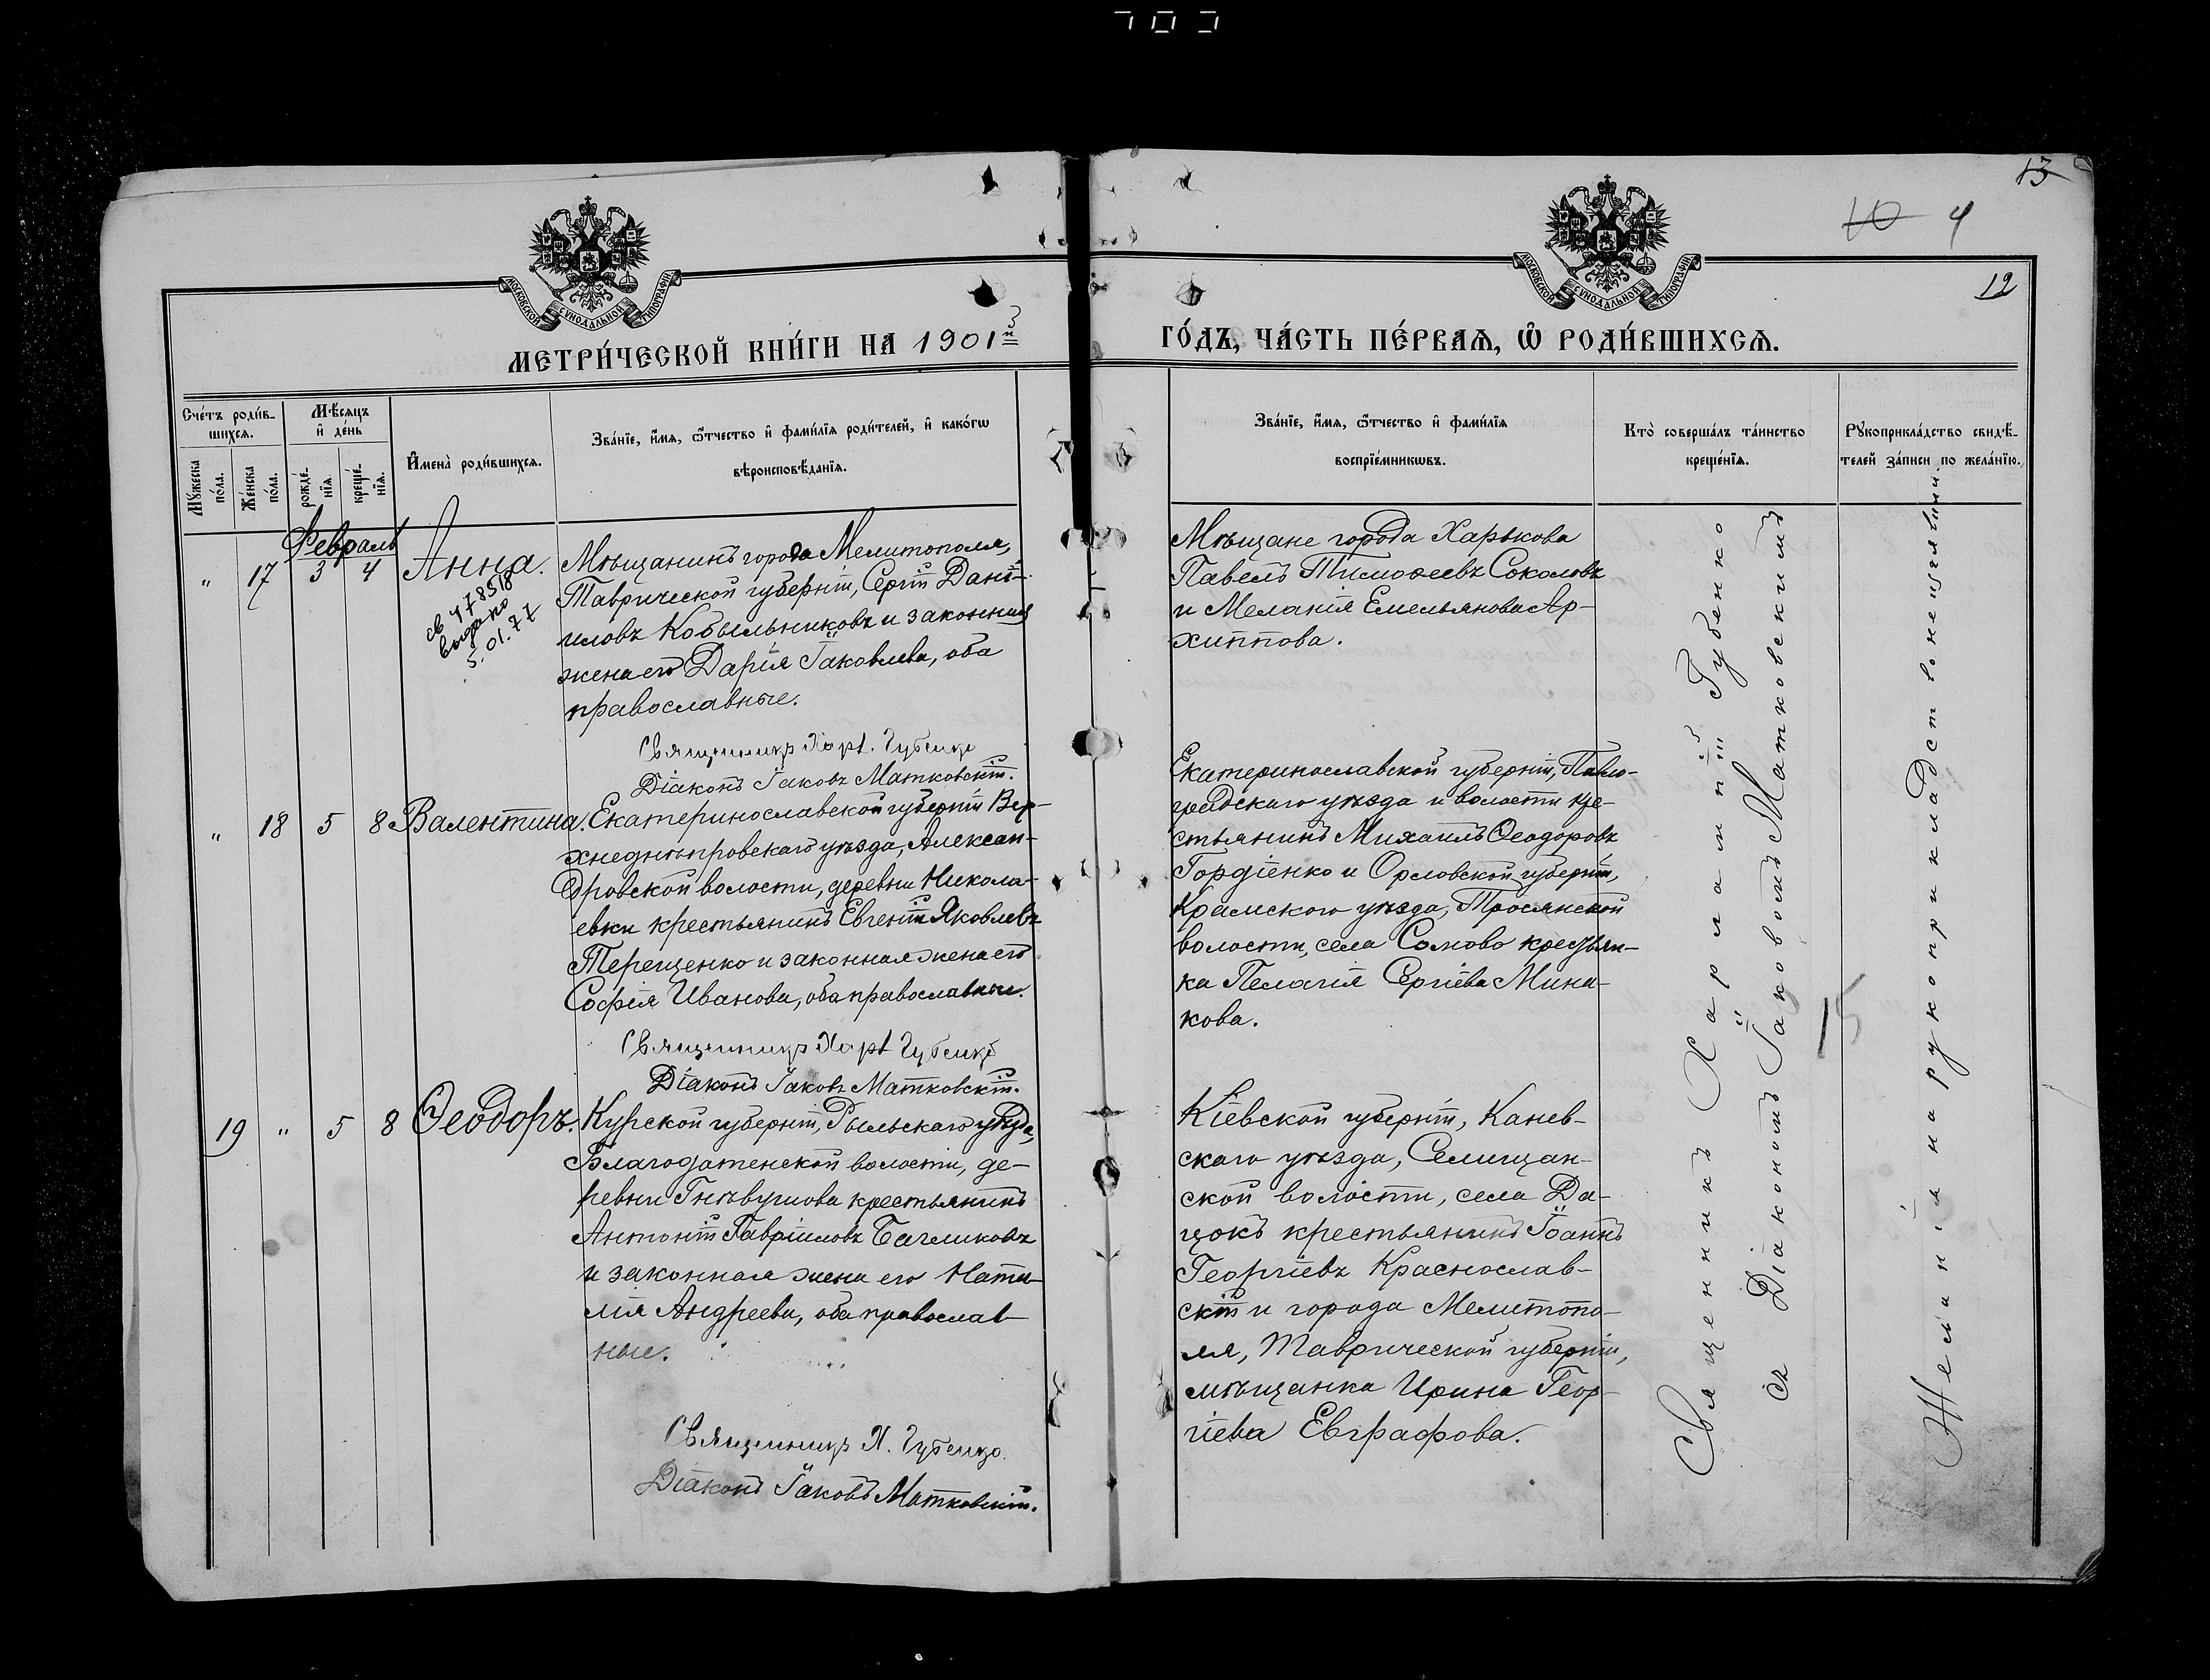 13
10 4
12
МОСКОВСКОЙ СѴНОДАЛЬНОЙ ТИПОГРАФІИ
МОСКОВСКОЙ СѴНОДАЛЬНОЙ ТИПОГРАФІИ
МЕТРИ́ЧЕСКОЙ КНИ́ГИ НА 1901й
ГО́ДЪ, ЧА́СТЬ ПЕ́РВАѦ, Ѽ РОДИ́ВШИХСѦ.
Сче́тъ роди́в-
шихсѧ.
Мѣ́сѧцъ
и҆ де́нь
Мꙋ́жеска
по́ла.
Же́нска
по́ла.
рожде́-
нїѧ.
креще́-
нїѧ.
И҆мена̀ роди́вшихсѧ.
Зва́нїе, и҆́мѧ, ѻ҆́тчество и҆ фами́лїѧ роди́телей, и҆ како́гѡ
вѣроисповѣ́данїѧ.
Зва́нїе, и҆́мѧ, ѻ҆́тчество и҆ фами́лїѧ
воспрїе́мникѡвъ.
Кто̀ соверша́лъ та́инство
креще́нїѧ.
Рꙋкоприкла́дство свидѣ́-
телей за́писи по жела́нїю.
Февраль
" 17 3 4 Анна.
св 478518
выдано
5.01.77
Мѣщанинъ города Мелитополя,
Таврической губерніи, Сергій Дані-
иловъ Кобыльниковъ и законная
жена его Дарія Іаковлева, оба
православные.
Священникъ Харл. Губенко
Діаконъ Іаковъ Матковскій.
Мѣщане города Харькова
Павелъ Тимоѳеевъ Соколовъ
и Меланія Емельянова Ар-
хиппова.
" 18 5 8 Валентина.
Екатеринославской губерніи Вер-
хнеднѣпровскаго уѣзда, Алексан-
дровской волости, деревни Никола-
евки крестьянинъ Евгеній Яковлевъ
Терещенко и законная жена его
Софія Иванова, оба православные.
Священникъ Харл Губенко
Діаконъ Іаковъ Матковскій.
Екатеринославской губерніи, Павло-
градскаго уѣзда и волости кре-
стьянинъ Михаилъ Ѳеодоровъ
Гордіенко и Орловской губерніи,
Крамскаго уѣзда, Тросянской
волости, села Сомово крестьян-
ка Пелагія Сергіева Мина-
кова.
19 " 5 8 Ѳеодоръ.
Курской губерніи, Рыльскаго уѣзда,
Благодатенской волости, де-
ревни Гнѣвушова крестьянинъ
Антоній Гавріиловъ Багликовъ
и законная жена его Ната-
лія Андреева, оба православ-
ные.
Священникъ Х. Губенко.
Діаконъ Іаковъ Матковскій.
Кіевской губерніи, Канев-
скаго уѣзда, Селищан-
ской волости, села Да-
цокъ крестьянинъ Іоаннъ
Георгіевъ Краснослав-
скій и города Мелитопо-
ля, Таврической губерніи,
мѣщанка Ирина Геор-
гіева Евграфова.
Священникъ Харлампій Губенко
съ Діакономъ Іаковомъ Матковскимъ
15